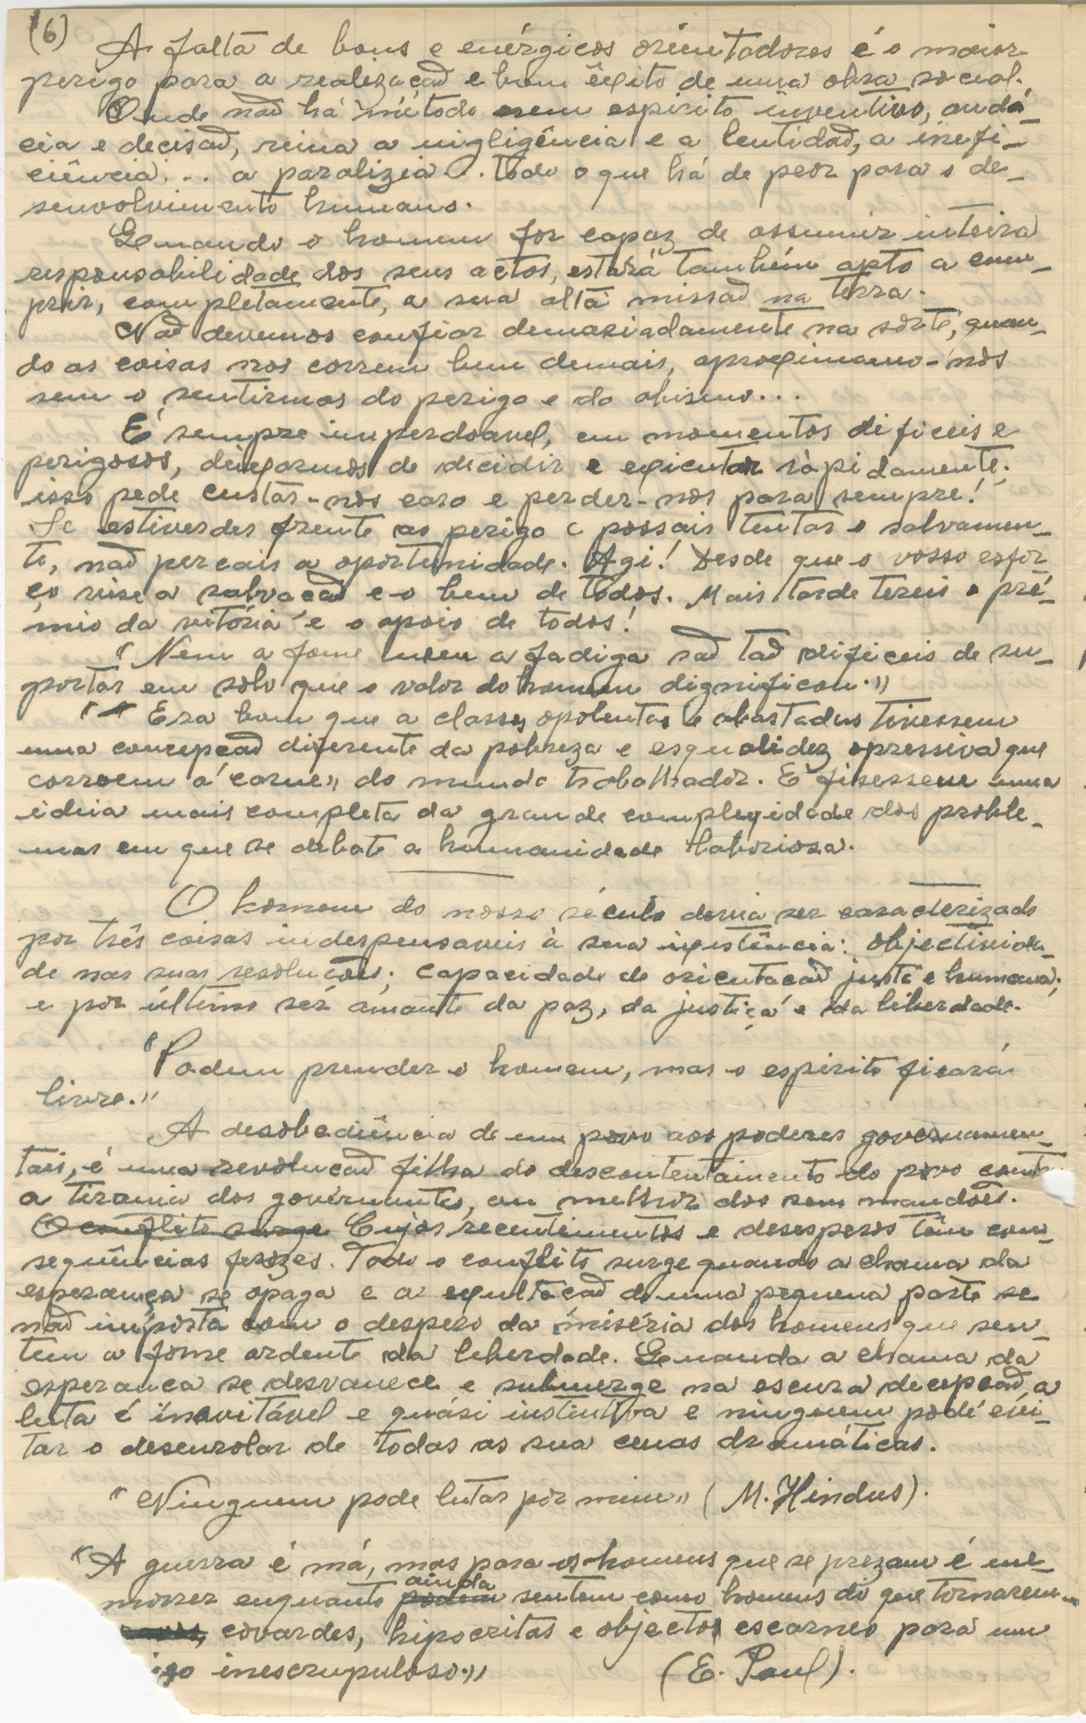 (6)
A falta de bons e enérgicos orientadores é o maior
perigo para a realização e bom êxito de uma obra social.
Onde não há método nem espirito inventivo, audá-
cia e decisão, reina a nigligência e a lentidão, a inefi-
ciência... a paralizia... todo o que há de peor para o de-
senvolvimento humano.
Quando o homem for capaz de assumir inteira
responsabilidade dos seus actos, estará também apto a cum-
prir, completamente, a sua alta missão na terra.
Não devemos confiar demasiadamente na sorte, quan-
do as coisas nos correm bem demais, aproximamo-nos
sem o sentirmos do perigo e do abismo...
É sempre imperdoavel, em momentos dificeis e
perigosos, deixarmos de decidir e exicutar ràpidamente.
isso pede custar-nos caro e perder-nos para sempre!
Se estiverdes frente ao perigo e possais tentar o salvamen-
to, não percais a oportunidade. Agi! Desde que o vosso esfor-
ço vise a salvação e o bem de todos. Mais tarde tereis o pré-
mio da vitória e o apoio de todos!
"Nem a fome nem a fadiga são tão dificeis de su-
portar em solo que o valor do homem dignificou."
" Era bom que a classes opolentas e abastadas tivessem
uma concepção diferente da pobreza e esqualidez opressiva que
corroem a carne" do mundo trabalhador. E fisessem uma
ideia mais completa da grande complexidade dos proble-
mas em que se debate a humanidade laboriosa.
O homem do nosso século devia ser caracterizado
por três coisas indespensaveis à sua existência: objectivida-
de nas suas resoluções; capacidade de orientação justa e humana;
e por último ser amante da paz, da justiça e da liberdade.
"Podem prender o homem, mas o espirito ficará
livre."
A desobediência de um povo aos poderes governamen-
tais, é uma revolução filha do descontentamento do povo contra
a tirania dos governantes, ou melhor dos seus mandões.
O conflito surge Cujos recentimentos e desesperos têm con-
sequências ferozes. Todo o conflito surge quando a chama da
esperança se apaga e a exultação de uma pequena parte se
não importa com o despero da miséria dos homens que sen-
tem a fome ardente da liberdade. Quando a chama da
esperança se desvanece e submerge na escura decepção, a
luta é inevitável e quási instintiva e ninguem pode evi-
tar o desenrolar de todas as sua cenas dramáticas.
"Ninguem pode lutar por mim" (M. Hindus).
"A guerra é má, mas para os homens que se prezam é me-
morrer enquanto podem ainda sentem como homens do que tornarem-
covardes, hipocritas e objectos escarneo para um
inescrupuloso." (E. Paul).